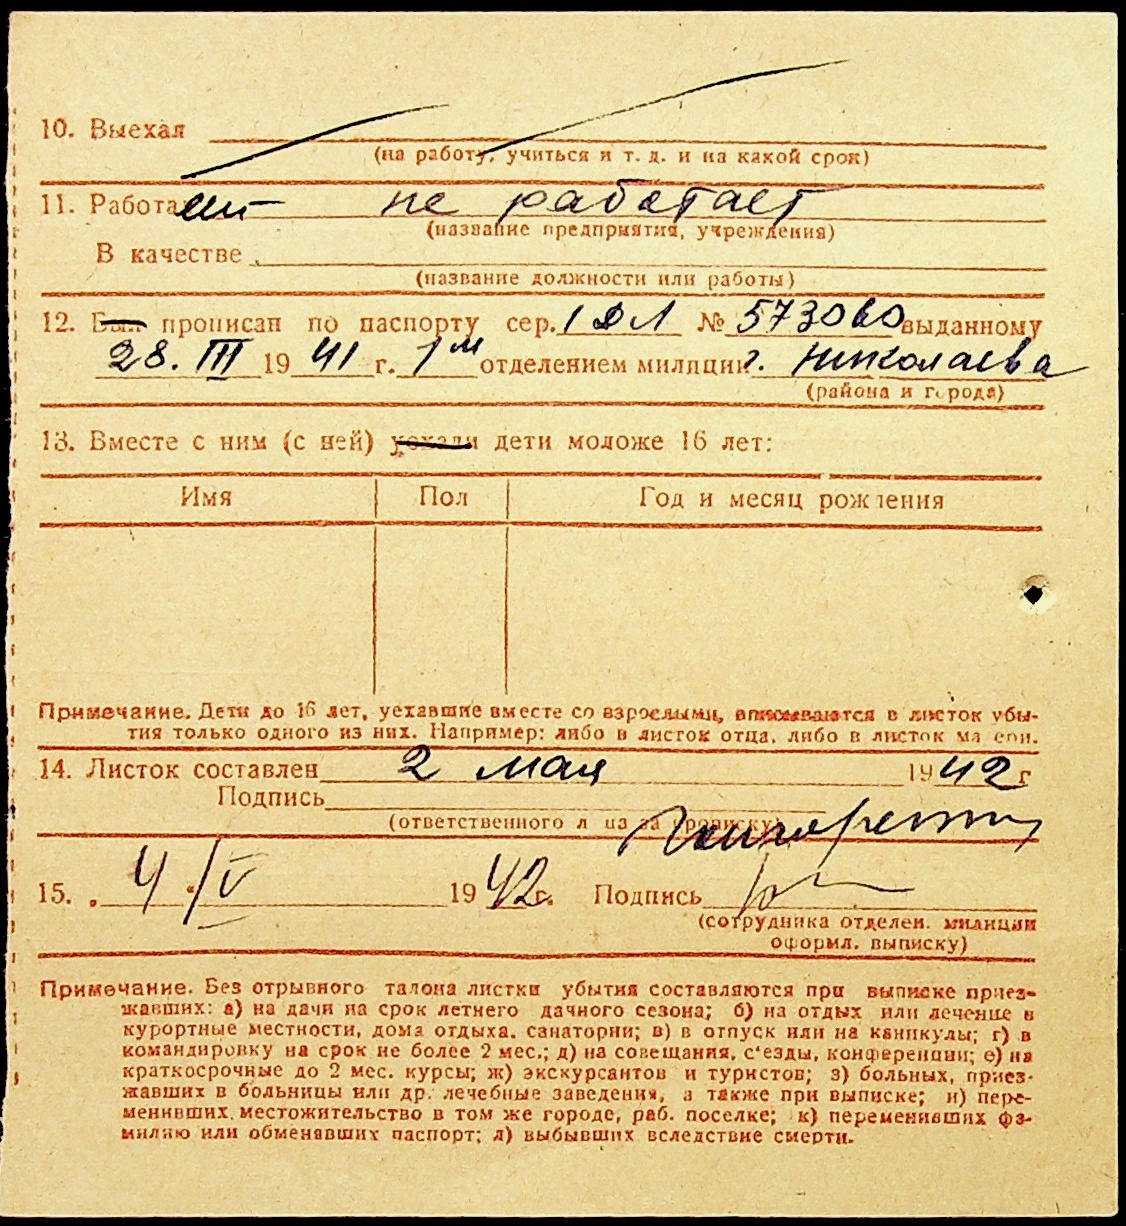 10. Выехал
(на работу, учиться и т. д. и на какой срок)
11. Работает не работает
(название предприятия, учреждения)
В качестве
(название должности или работы)
12. Был прописан по паспорту сер. 1 ДЛ № 573060 выданному
28. III 1941 г. 1м отделением милиции г. Николаева
(района и города)
13. Вместе с ним (с ней) уехали дети моложе 16 лет:
Имя Пол Год и месяц рождения
Примечание. Дети до 16 лет, уехавшие вместе со взрослыми, вписываются в листок убы-
тия только одного из них. Например: либо в листок отца, либо в листок матери.
14. Листок составлен 2 мая 1942 г
Подпись
(ответственного лица за прописку)
15. „ 4 “ /V 1942 г. Подпись
(сотрудника отделен. милиции
оформл. выписку)
Примечание. Без отрывного талона листки убытия составляются при выписке приез-
жавших: а) на дачи на срок летнего дачного сезона; б) на отдых или лечение в
курортные местности, дома отдыха, санатории; в) в отпуск или на каникулы; г) в
командировку на срок не более 2 мес.; д) на совещания, с'езды, конференции; е) на
краткосрочные до 2 мес. курсы; ж) экскурсантов и туристов; з) больных, приез-
жавших в больницы или др. лечебные заведения, а также при выписке; и) пере-
менивших местожительство в том же городе, раб. поселке; к) переменивших фа-
милию или обменявших паспорт; л) выбывших вследствие смерти.